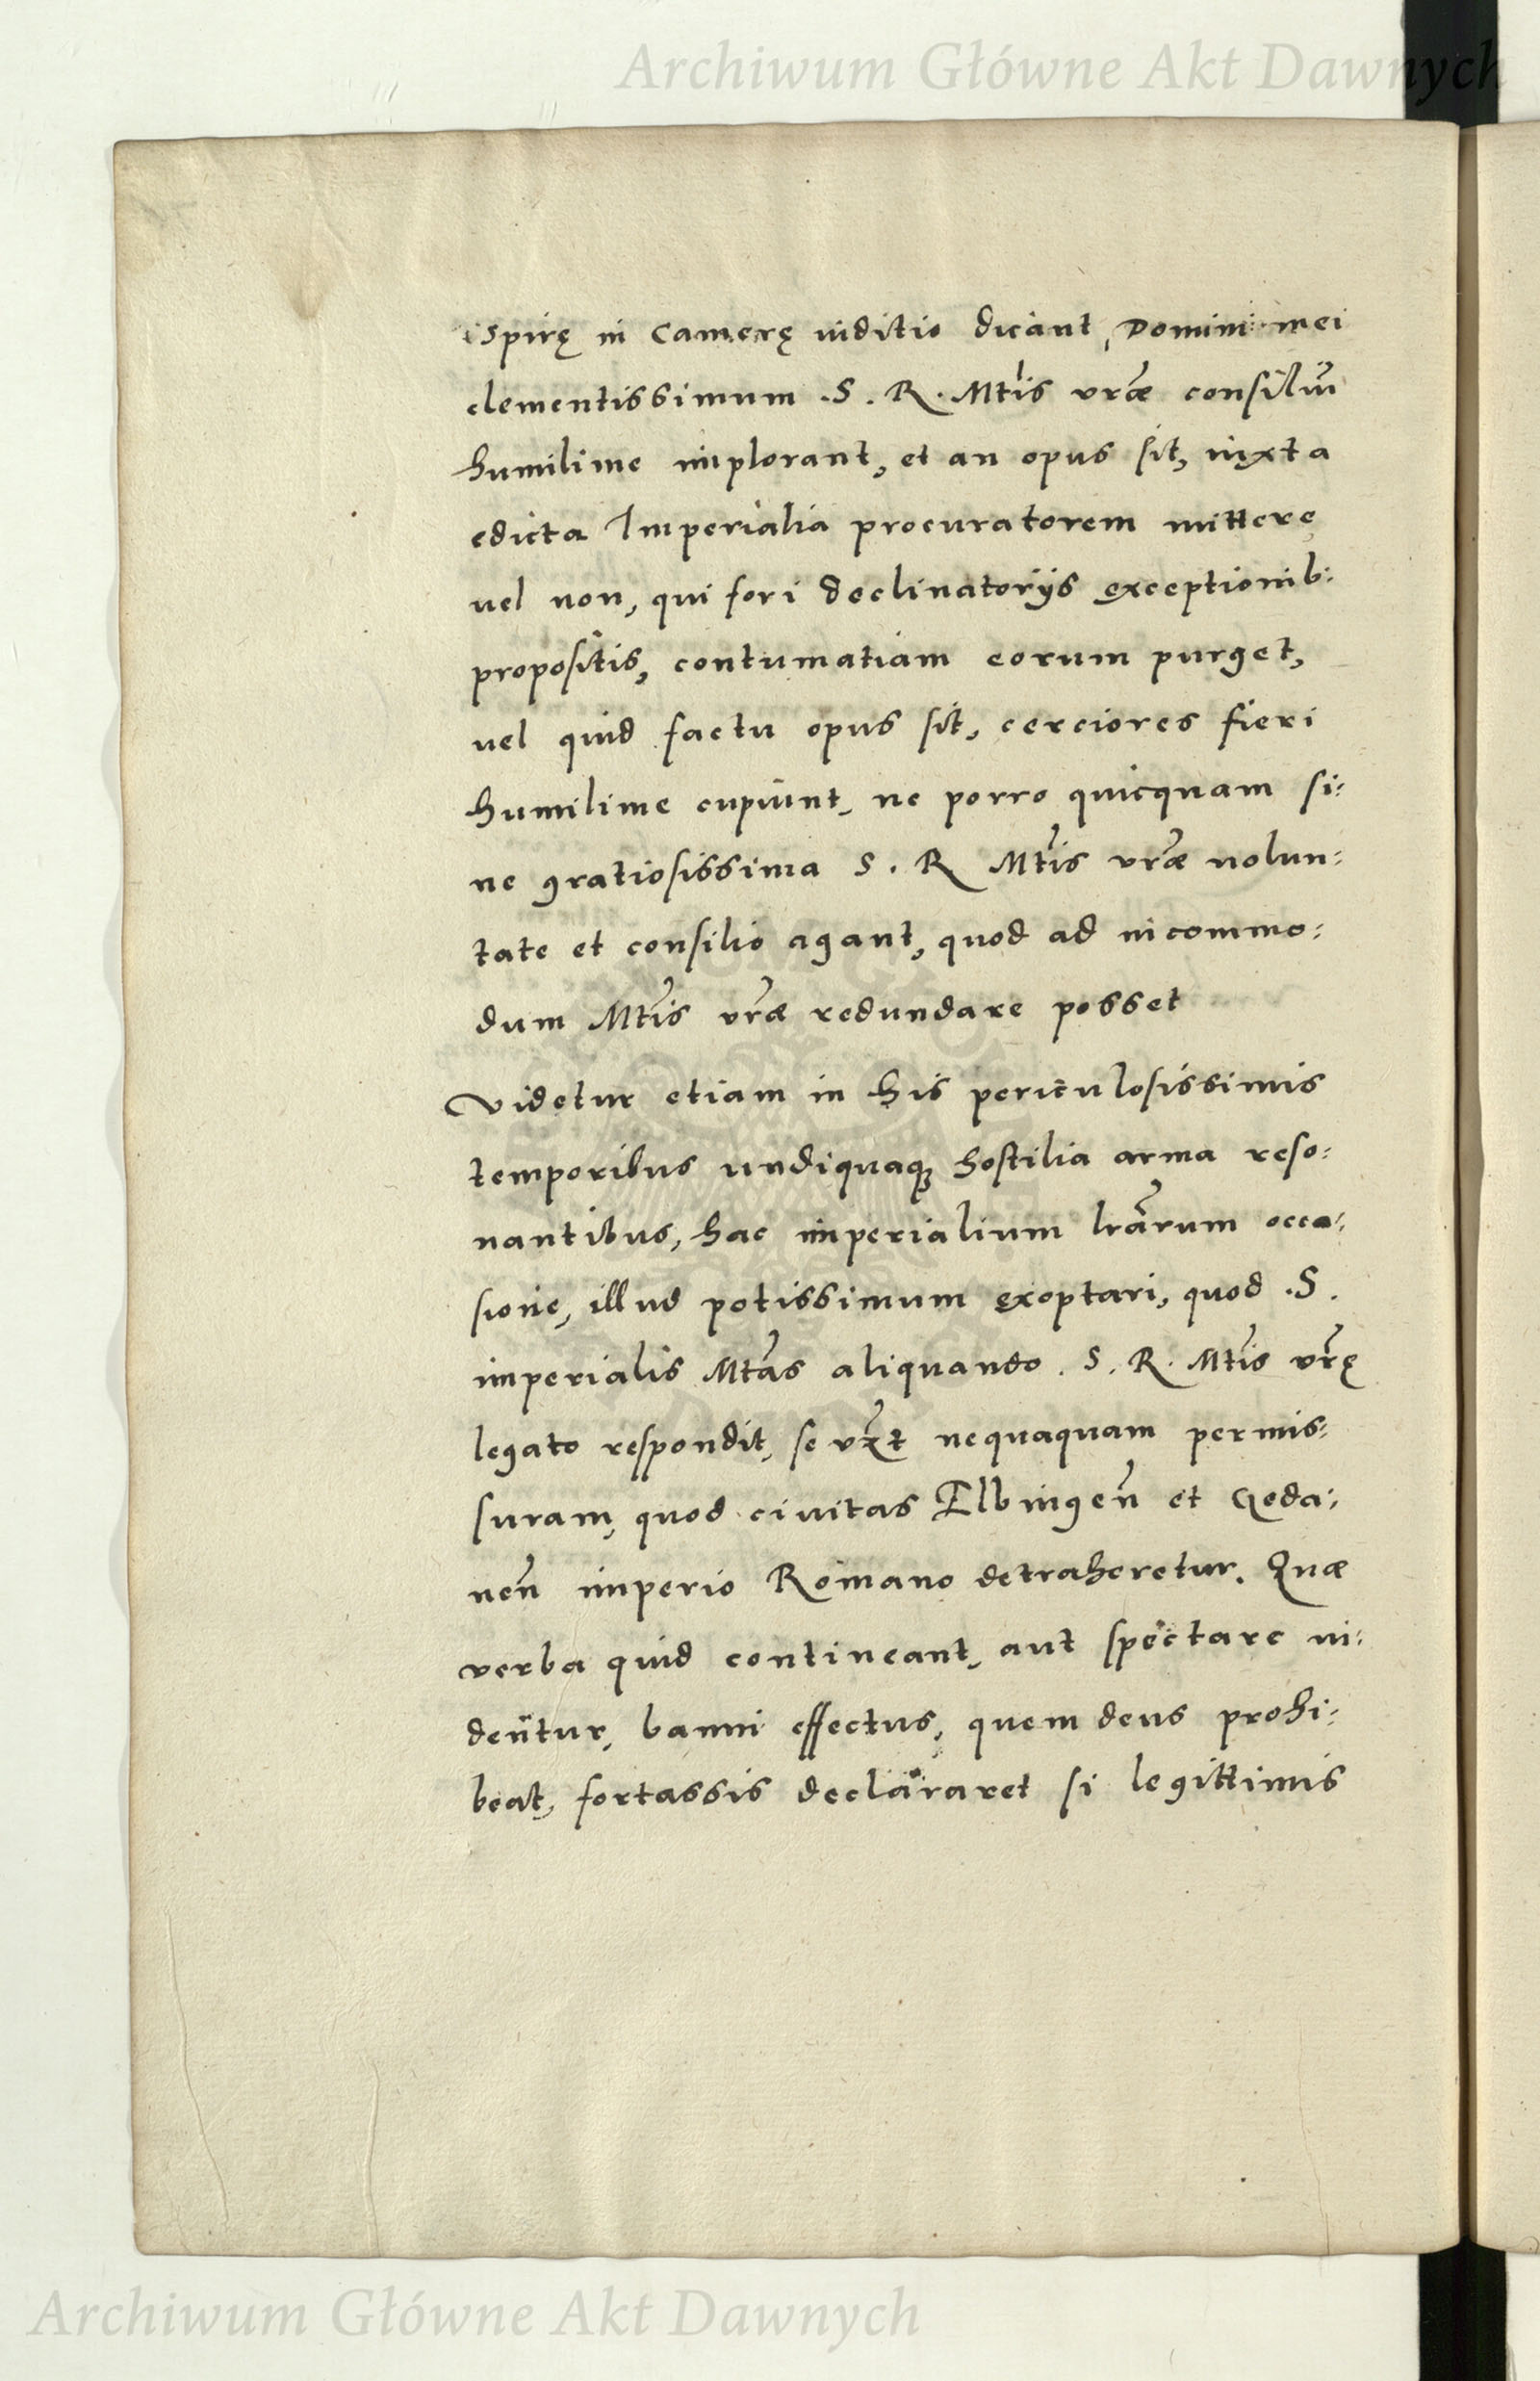 Archiwum Główne Akt Dawnych
Spirę in Camerę iuditio dicant, Domini mei
clementissimum .S. R. Mtis vrae consiliū
humilime implorant, et an opus sit, iuxta
edicta Imperialia procuratorem mittere
uel non, qui fori declinatorijs exceptionib:
propositis, contumatiam eorum purget,
uel quid factu opus sit, cerciores fieri
humilime cupiunt, ne porro quicquam si:
ne gratiosissima S. R Mtis vrae uolun:
tate et consilio agant, quod ad incommo:
dum Mtis vrae redundare posset
Videtur etiam in his periculosissimis
temporibus undiquaq; hostilia arma reso:
nantibus, hac imperialium lrarum occa:
sione, illud potissimum exoptari, quod .S.
imperialis Mtas aliquando . S. R. Mtis vrę
legato respondit, se vzt nequaquam permis:
suram, quod ciuitas Elbingen̄ et Geda:
nen̄ imperio Romano detraheretur. Quae
verba quid contineant, aut spectare ui:
dentur, banni effectus, quem deus prohi:
beat, fortassis declararet si legittimis
Archiwum Główne Akt Dawnych